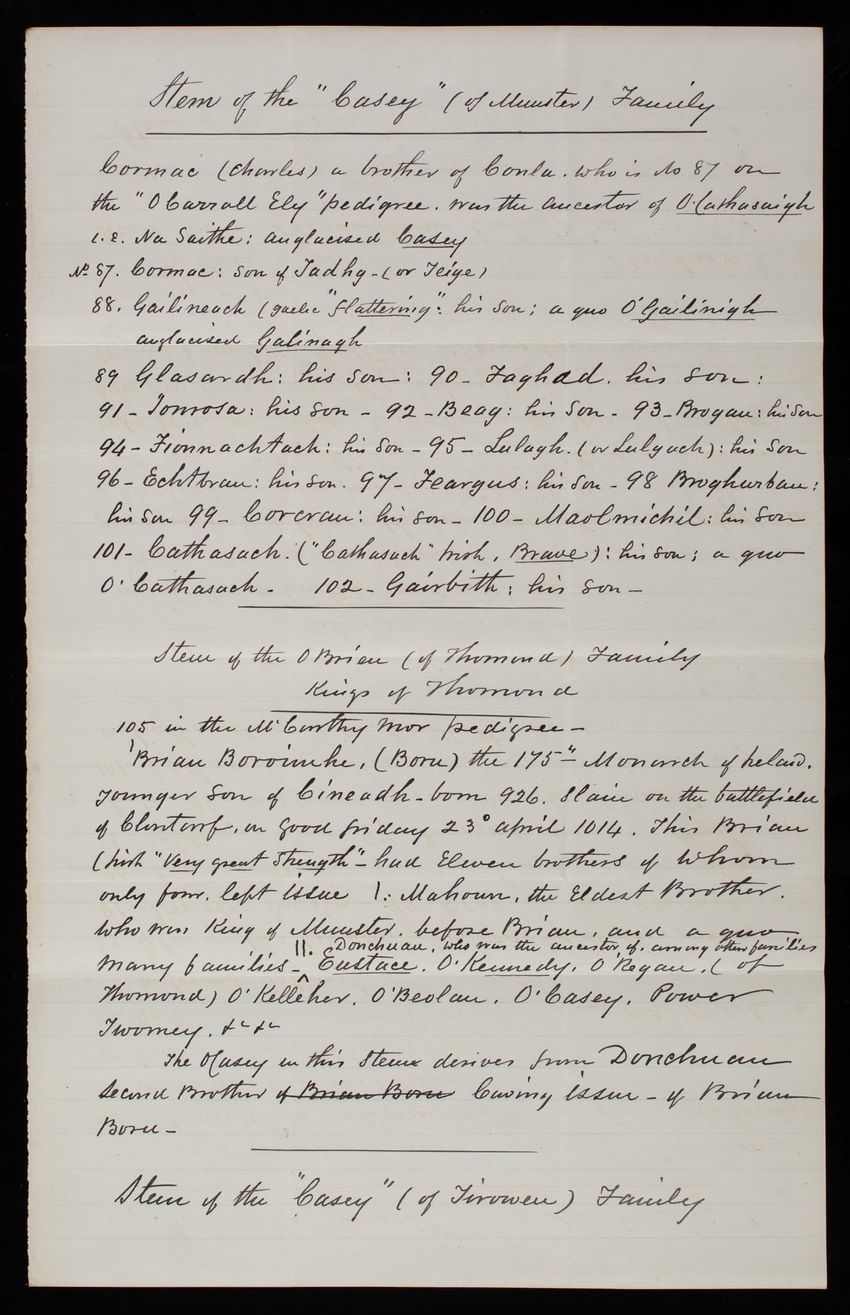 Stem of the "Casey" (of Munster) Family
Cormac (Charles) a brother of Conla. who is No 87 on
the "O Carroll Ely" pedigree. was the ancestor of O'Cathasaigh
i.e. Na Saithe: anglacised Casey
No 87. Cormac: son of Tadhg - (or Teige)
88. Gailineach (gaelic "flattering": his son; a quo O'Gailinigh
anglacised Galinagh
89 Glasardh: his son: 90 - Faghad. his son:
91 - Iomrosa: his son - 92 - Beag: his son - 93 - Brogan: his son
94 - Fionnachtach: his son - 95 - Lulagh. (or Lulgach): his son
96 - Echtbran: his son. 97 - Feargus: his son - 98 Broghurban:
his son 99 - Corcran: his son - 100 - Maolmichil: his son
101 - Cathasach. ("Cathasach" Irish, Brave): his son; a quo
O'Cathasach - 102 - Gairbith; his son -
Stem of the O Brien (of Thomond) Family
Kings of Thomond
105 in the McCarthy Mor pedigree -
Brian Boroimhe, (Boru) the 175th Monarch of Ireland.
younger son of Cineadh - born 926. Slain on the battlefield
of Clontarf, on good friday 23° april 1014. This Brian
(Irish "Very great Strength" - had Eleven brothers of whom
only four. left issue I.: Mahoun, the Eldest Brother.
who was King of Munster. before Brian, and a quo
many families - II. Donchuan, who was the ancestor of, among other families
Eustace. O'Kennedy, O'Regan, (of
Thomond) O'Kelleher, O'Beolan, O'Casey, Power
Twomey. &c &c
The O'Casey in this Stem derives from Donchuan
second Brother of Brian Boru leaving issue - of Brian
Boru -
Stem of the "Casey" (of Tirowen) Family